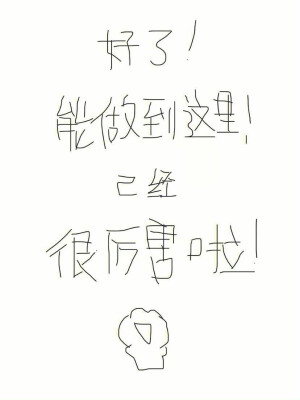 好了!
能做到这里!
已经
很厉害啦!